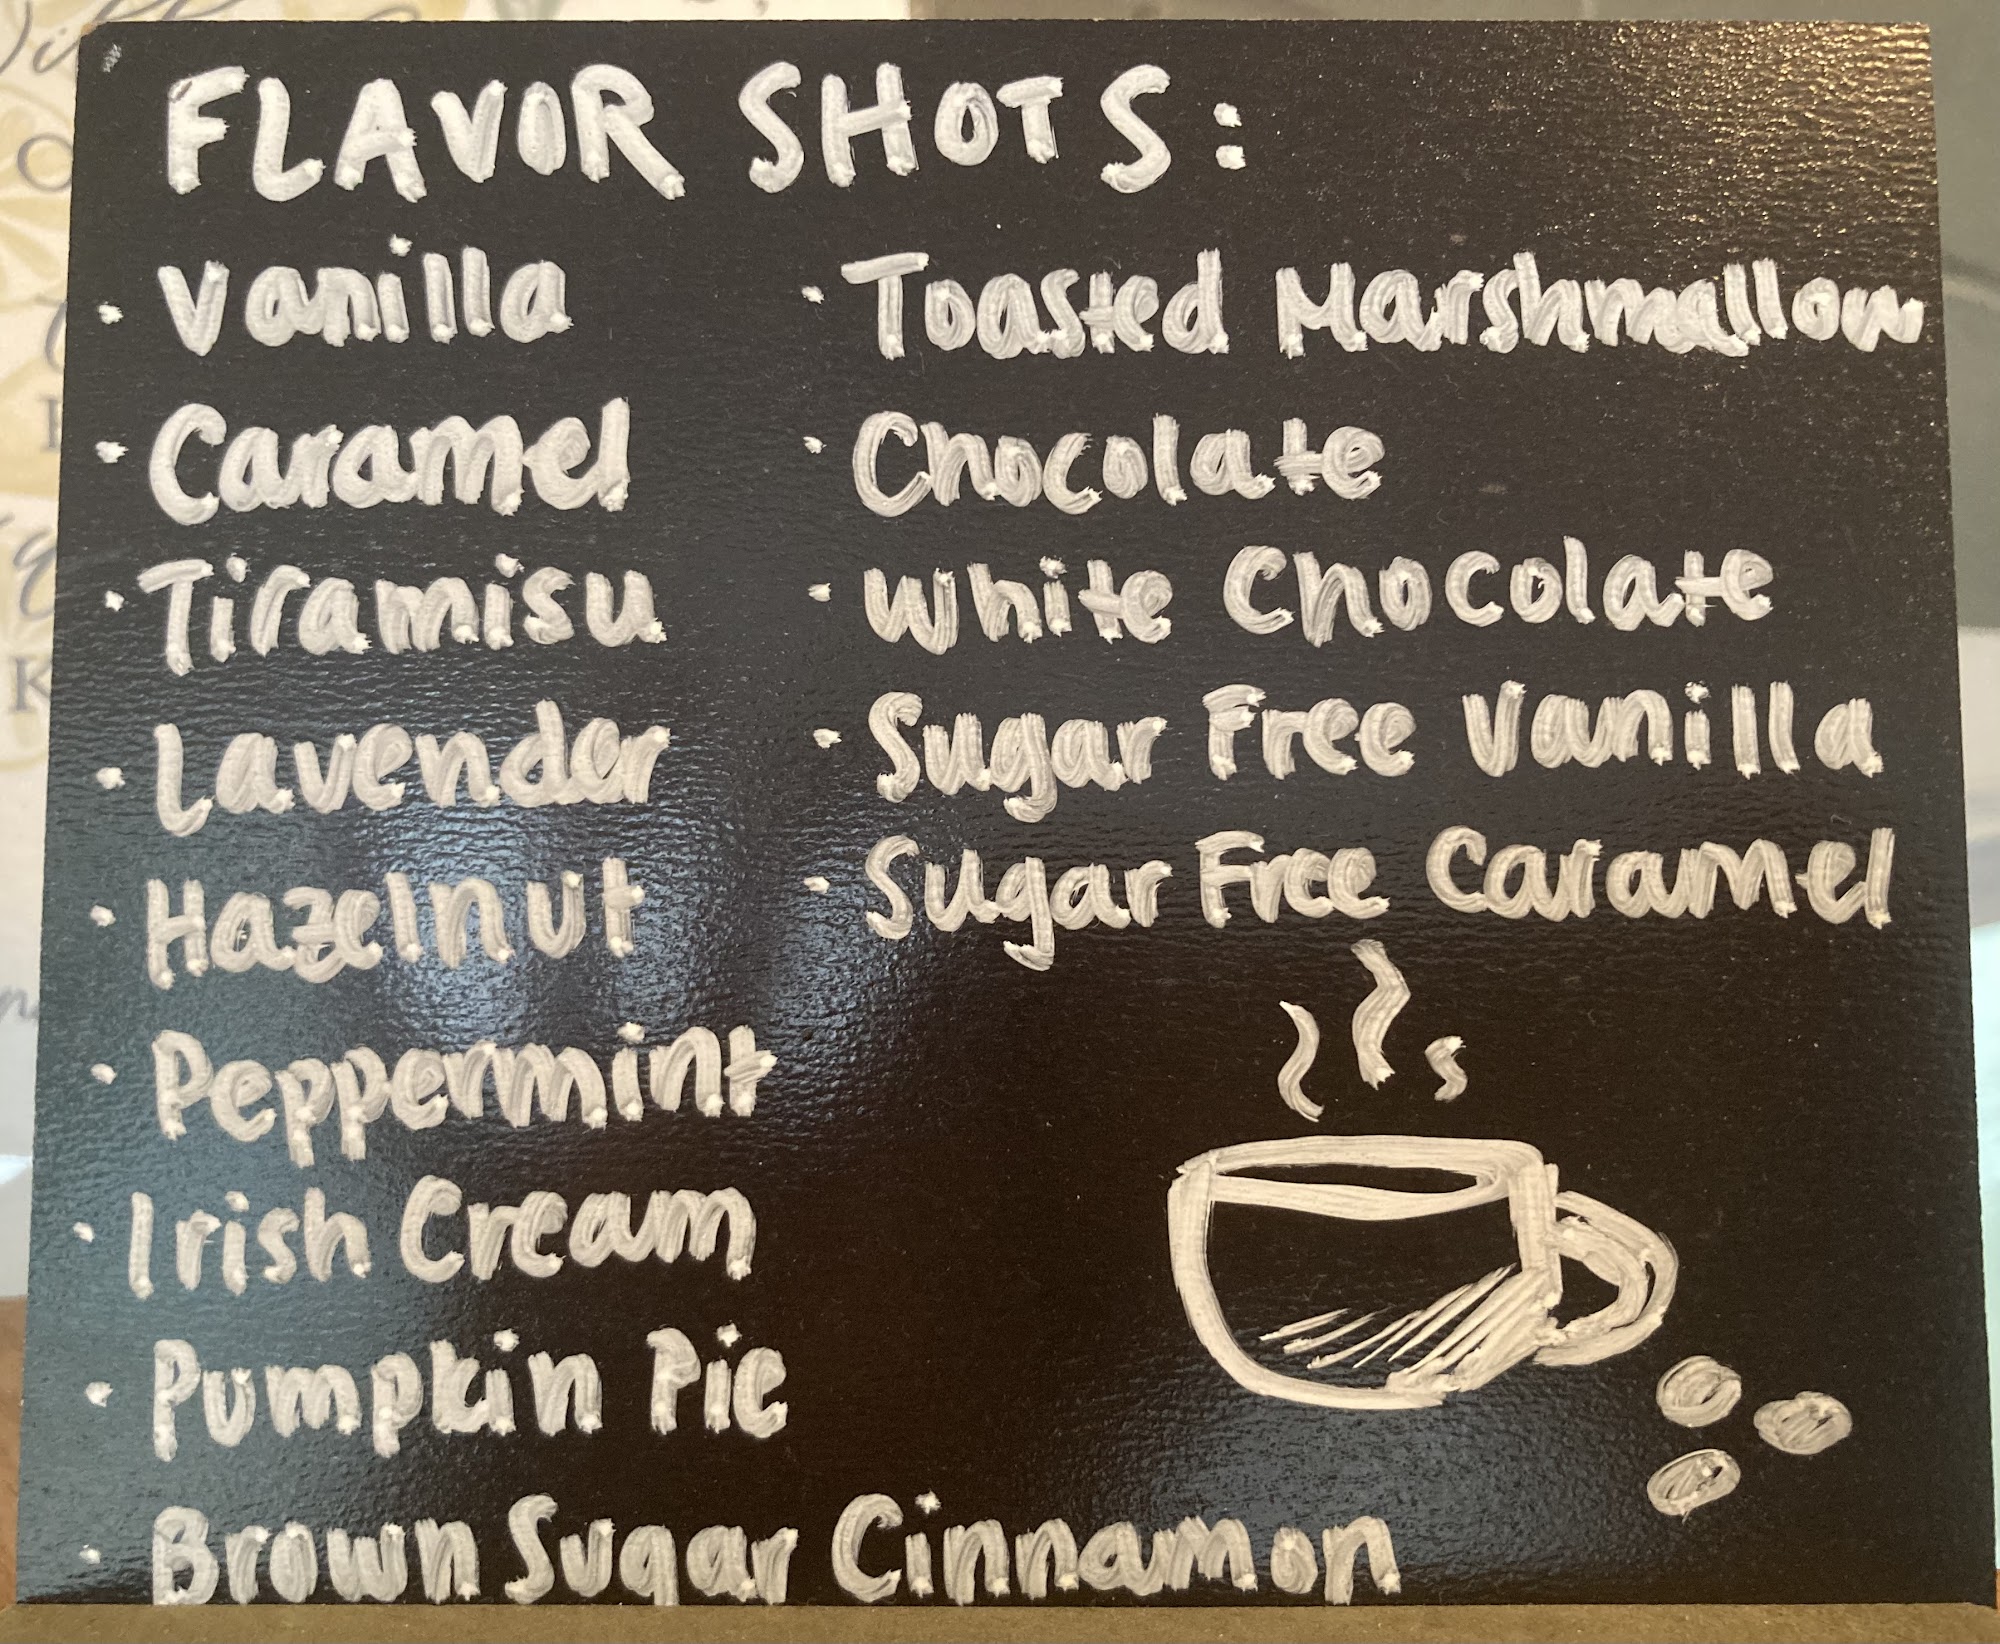 FLAVOR SHOTS:
· Vanilla
· Caramel
· Tiramisu
· Lavender
· Hazelnut
· Peppermint
· Irish Cream
· Pumpkin Pie
· Brown Sugar Cinnamon
· Toasted Marshmallow
· Chocolate
· White Chocolate
· Sugar Free Vanilla
· Sugar Free Caramel